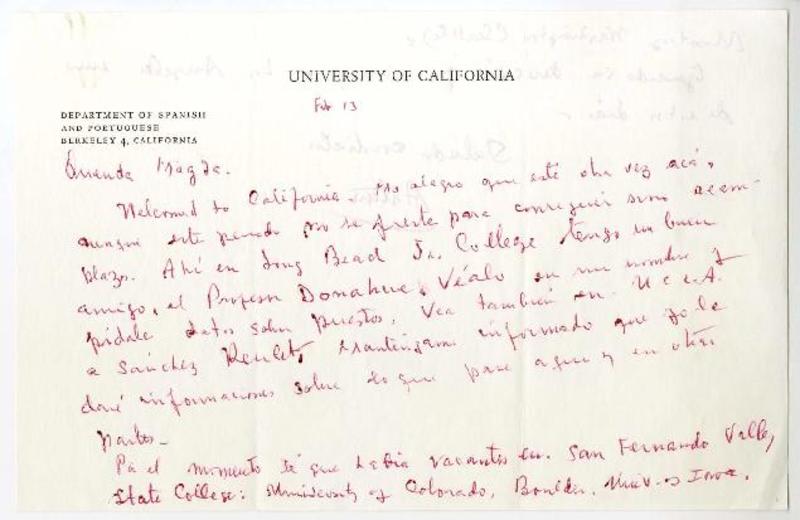 UNIVERSITY OF CALIFORNIA
Feb 13
DEPARTMENT OF SPANISH
AND PORTUGUESE
BERKELEY 4, CALIFORNIA
Querida Magda.
Welcomed to California. Me alegro que esté otra vez acá,
aunque este periodo no se preste para conseguir sino reem-
plazos. Ahí en Long Beach Jr. College tengo un buen
amigo, el Profesor Donahue. Véalo en mi nombre y
pídale datos sobre puestos. Vea también en U C L A.
a Sánchez Reulet. Manténgame informado que yo le
daré informaciones sobre lo que pase aquí y en otras
partes.
el momento sé que había vacantes en San Fernando Valley
State College: University of Colorado, Boulder, Univ. of Iowa.